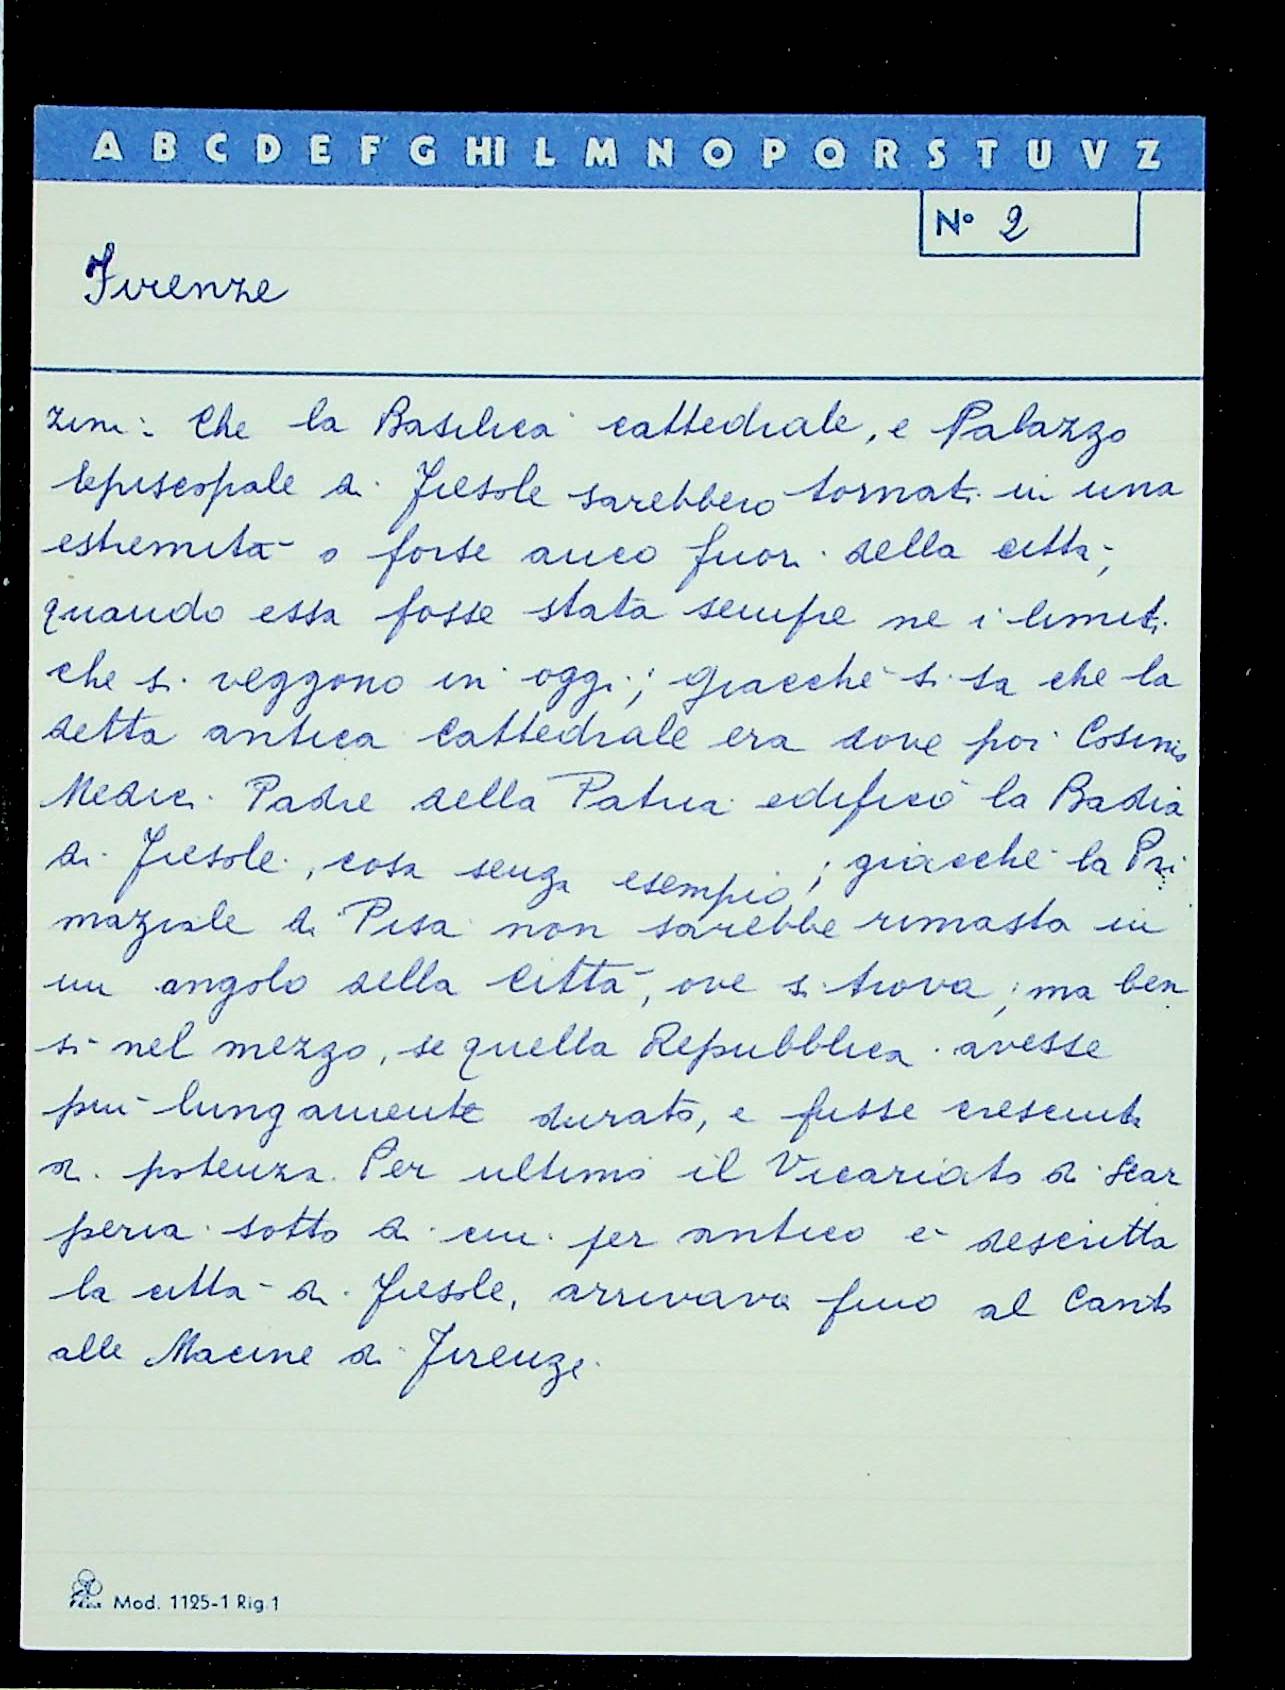 A B C D E F G HI L M N O P Q R S T U V Z
N° 2
Firenze
zini: Che la Basilica cattedrale, e Palazzo
Episcopale di Fiesole sarebbero tornati in una
estremità o forse anco fuori della città;
quando essa fosse stata sempre ne i limiti
che si veggono in oggi; giacchè si sa che la
detta antica Cattedrale era dove poi Cosimo
Medici Padre della Patria edificò la Badia
di Fiesole, cosa senza esempio; giacchè la Pri
maziale di Pisa non sarebbe rimasta in
un angolo della Città, ove si trova; ma ben
sì nel mezzo, se quella Repubblica avesse
più lungamente durato, e fusse cresciuta
di potenza. Per ultimo il Vicariato di Scar
peria sotto di cui per antico è descritta
la città di Fiesole, arrivava fino al Canto
alle Macine di Firenze.
Mod. 1125-1 Rig.1